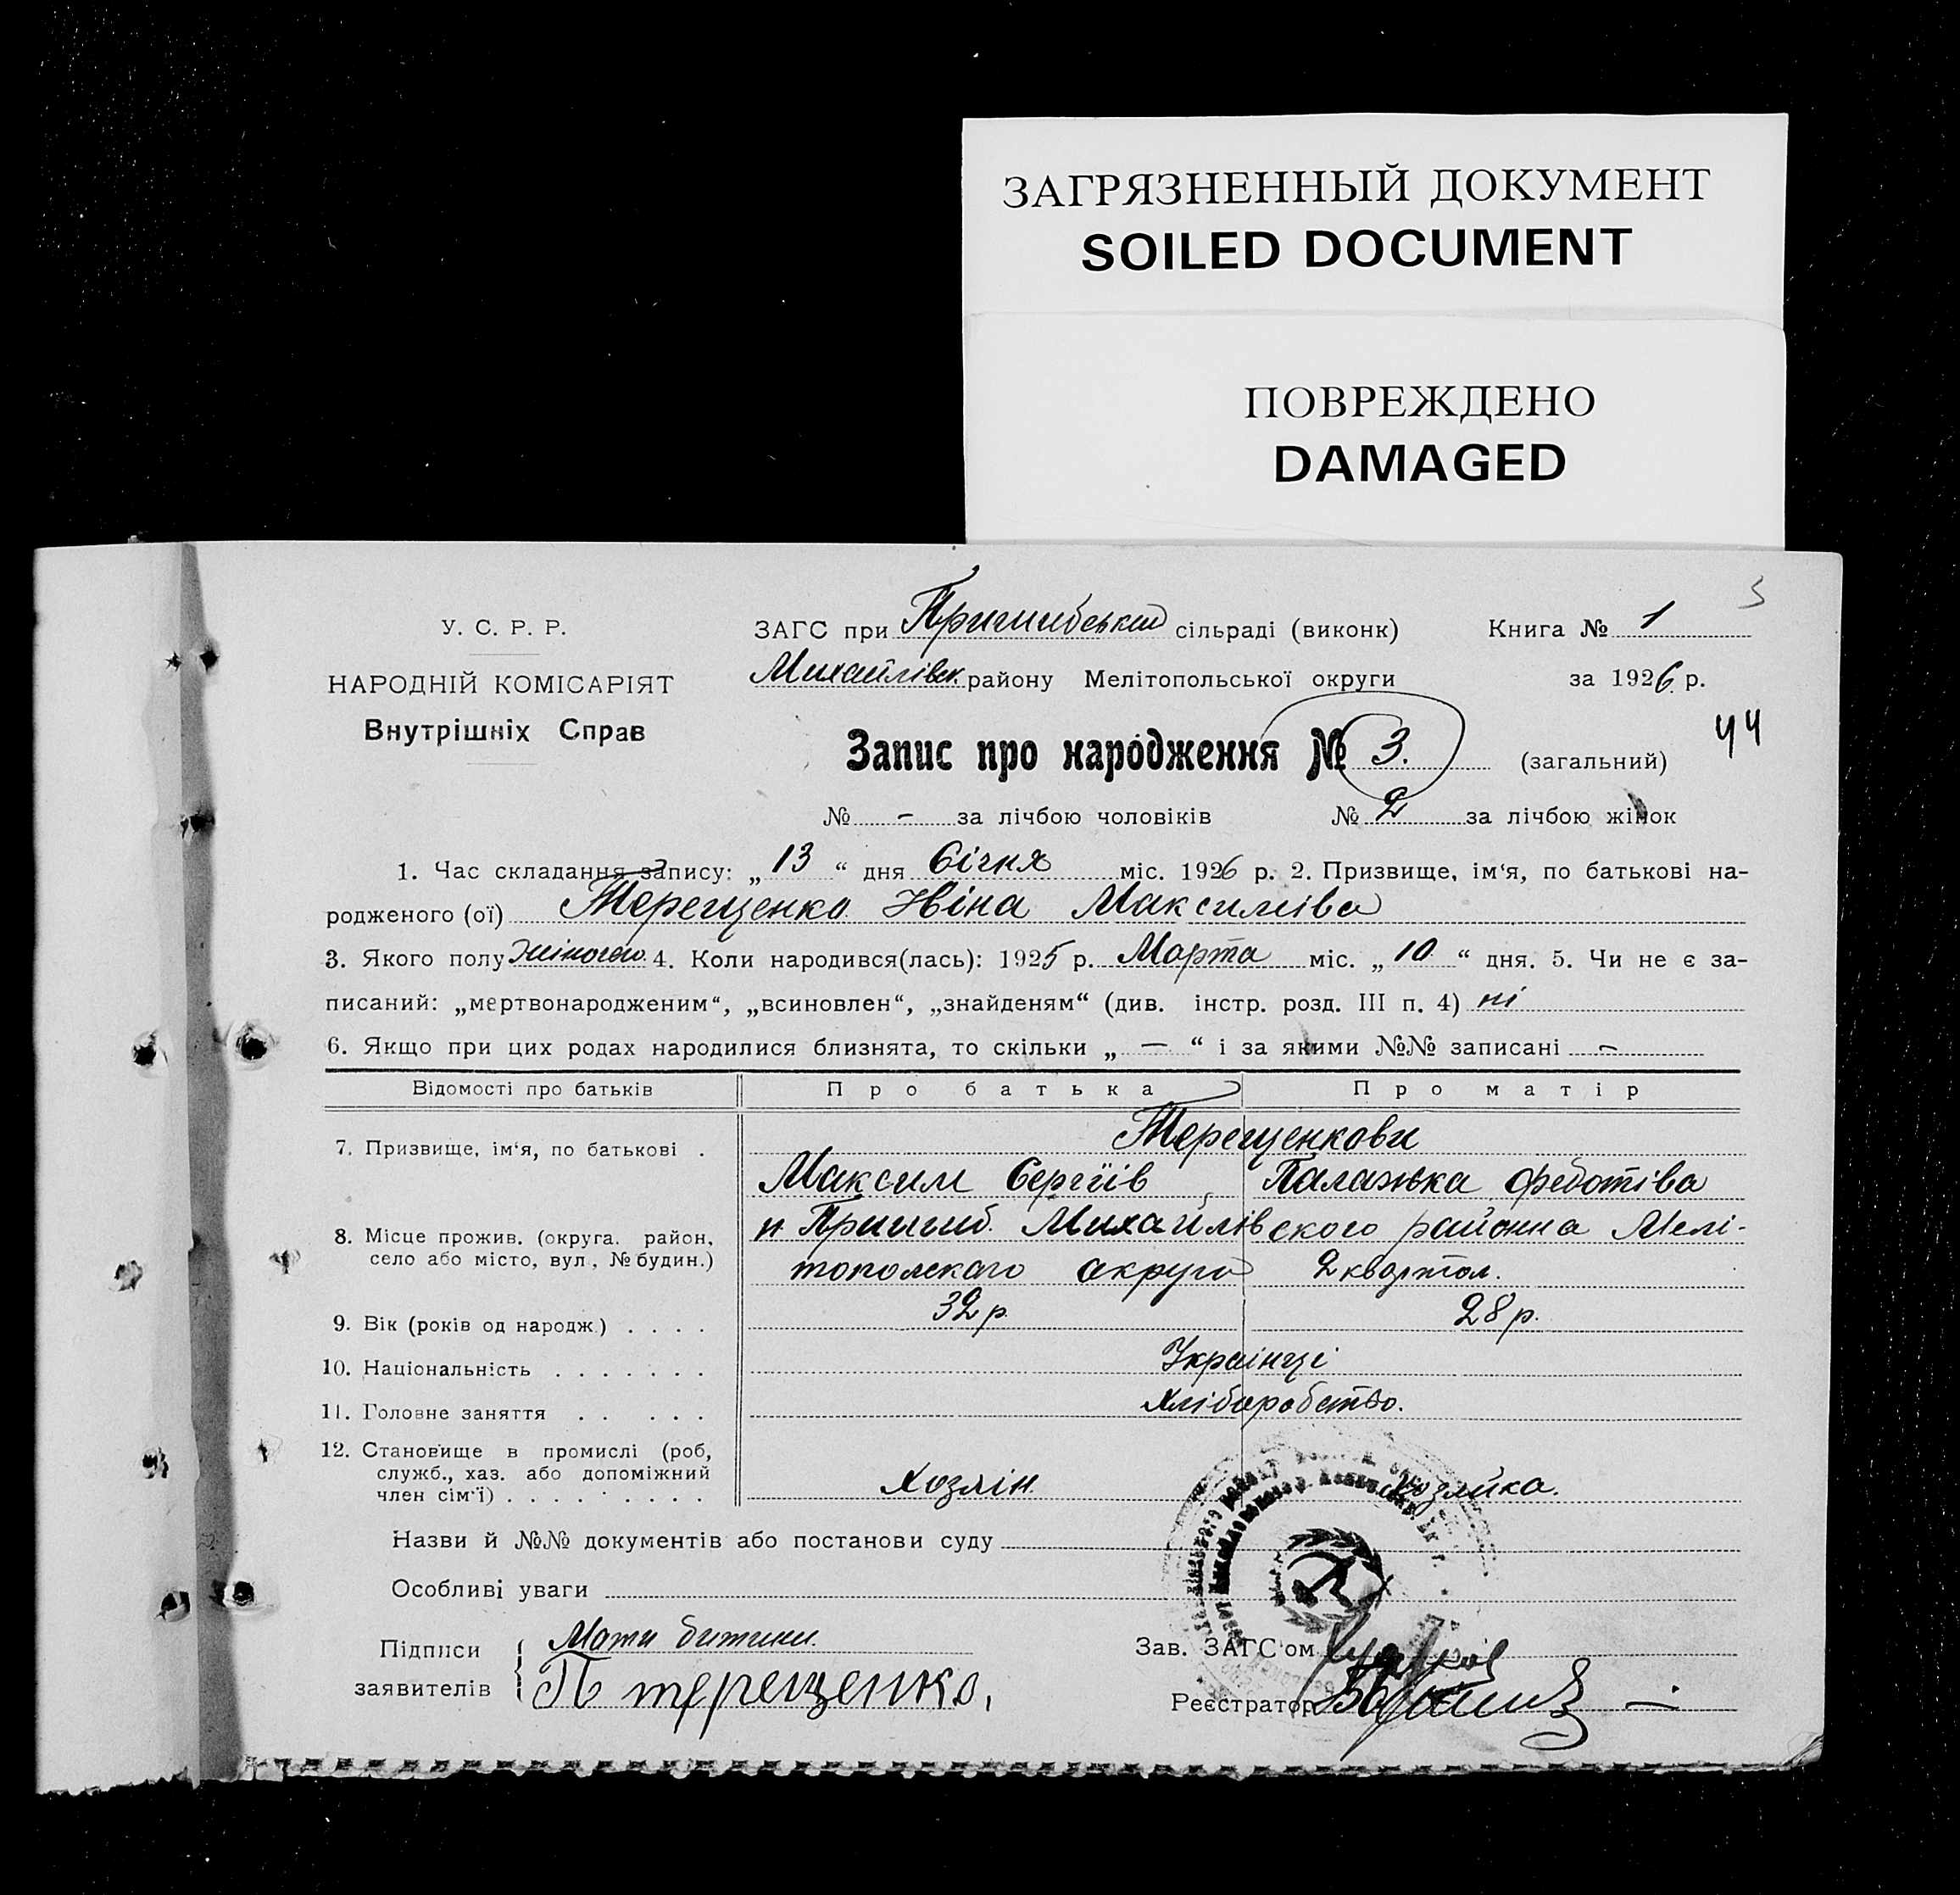 ЗАГРЯЗНЕННЫЙ ДОКУМЕНТ
SOILED DOCUMENT
ПОВРЕЖДЕНО
DAMAGED
3
У. С. Р. Р.
НАРОДНІЙ КОМІСАРІЯТ
Внутрішніх Справ
ЗАГС при Пришибський сільраді (виконк) Книга № 1
Михайлівск. району Мелітопольської округи за 1926 р.
44
Запис про народження № 3. (загальний)
№ – за лічбою чоловіків № 2 за лічбою жінок
1. Час складання запису: „ 13 “ дня Січня міс. 1926 р. 2. Призвище, ім‘я, по батькові на-
родженого (ої) Терещенко Ніна Максиміва
3. Якого полу жіного 4. Коли народився(лась): 1925 р. Марта міс. „ 10 “ дня. 5. Чи не є за-
писаний: „мертвонародженим“, „всиновлен“, „знайденям“ (див. інстр. розд. III п. 4) ні
6. Якщо при цих родах народилися близнята, то скільки „ — “ і за якими №№ записані –
Відомості про батьків Про батька Про матір
7. Призвище, ім‘я, по батькові . Терещенкови
Максим Сергіїв Палажка Федотіва
8. Місце прожив. (округа. район, село або місто, вул., № будин.) Пришиб. Михайлівского района Мелі-
тополскаго округа 2 квартал.
9. Вік (років од народж.) . . . . 32 р. 28 р.
10. Національність . . . . . . . Українці
11. Головне заняття . . . . . Хліборобство.
12. Становище в промислі (роб,
служб., хаз. або допоміжний
член сім‘ї) . . . . . . . . . Хозяін. Хозяйка.
Назви й №№ документів або постанови суду
Особливі уваги
Підписи Мати
заявителів П терещенко,
Зав. ЗАГС‘ом
Реєстратор